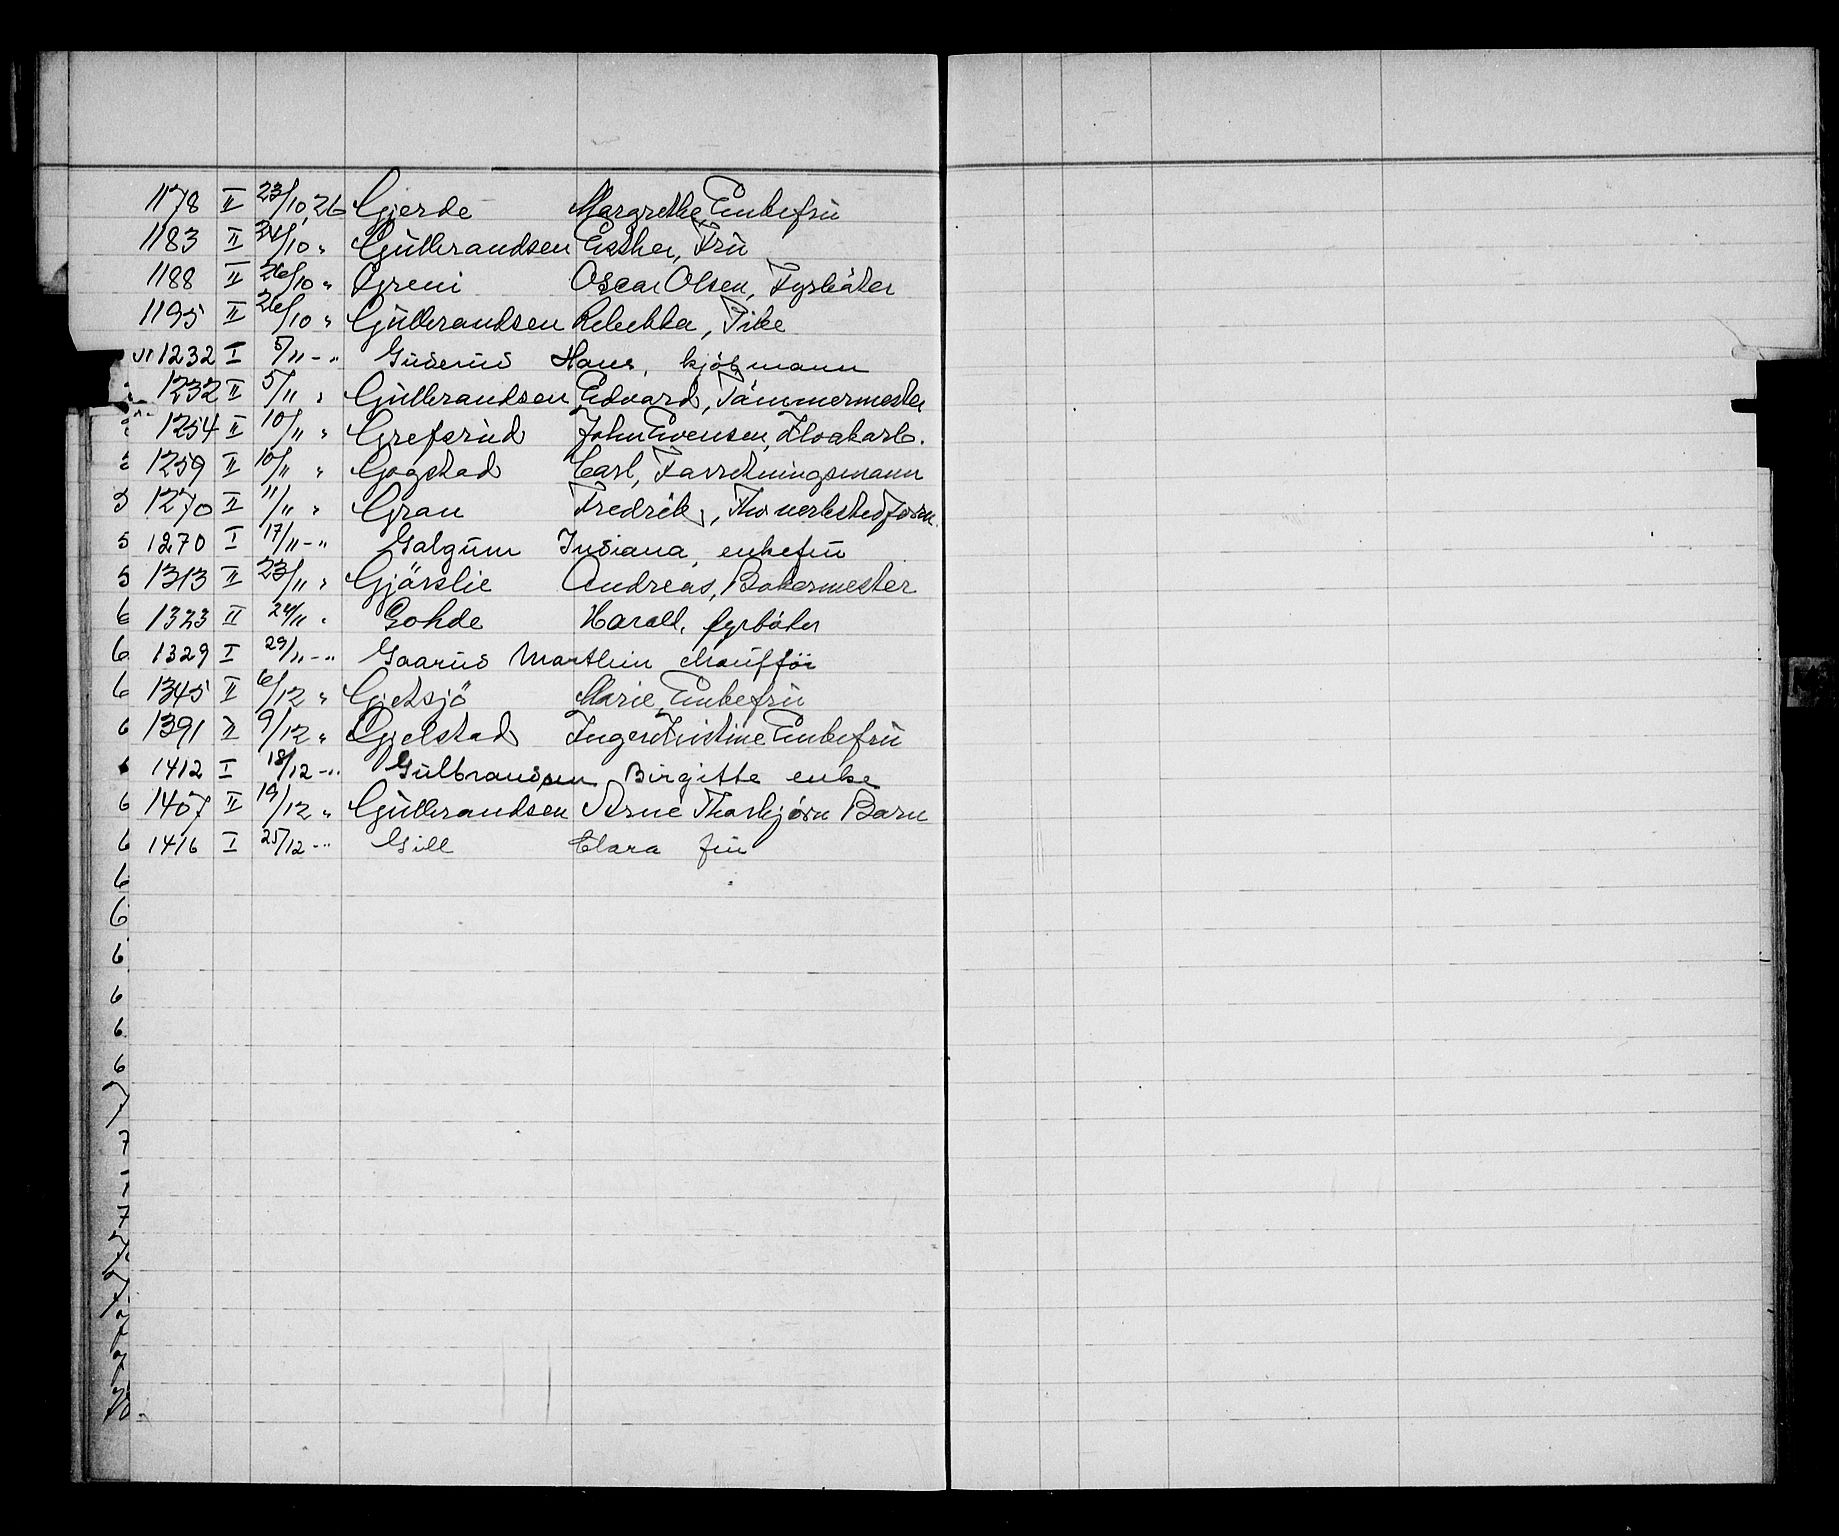 1178 II 23/10,26 Gjerde Margrethe, Enkefrü
1183 II 24/10 " Gülbrandsen Esther, Frü
1188 II 26/10 " Greni Oscar Olsen, Fyrböter
1195 II 26/10 " Gülbrandsen Rebekka, Pike
1232 I 5/11 -"- Güserüd Hans, kjöpmann
1232 II 5/11 " Gülbrandsen Edvard, Tömmermester
1254 II 10/11 " Grefsrüd John Evensen, Kloakarb.
1259 II 10/11 " Gogstad Carl, Forretningsmann
5 1270 II 11/11 " Gran Fredrik,
5 1270 I 17/11 -"- Galgüm Indiana, enkefrü
5 1313 II 23/11 " Gjörslie Andreas, Bakermester
6 1323 II 24/11 " Gohde Harald, fyrböter
6 1329 I 29/11 -"- Gaarüd Marthin chaufför
6 1345 II 6/12 " Gjetsjö Marie, Enkefrü
6 1391 II 9/12 " Gjelstad Inger Kristine Enkefrü
1412 I 18/12 -"- Gülbrandsen Birgitte enke
6 1407 II 19/12 " Gülbrandsen Arne Thorbjørn Barn
6 1416 I 25/12 -"- Gill Clara frü
6
6
6
6
6
6
7
7
7